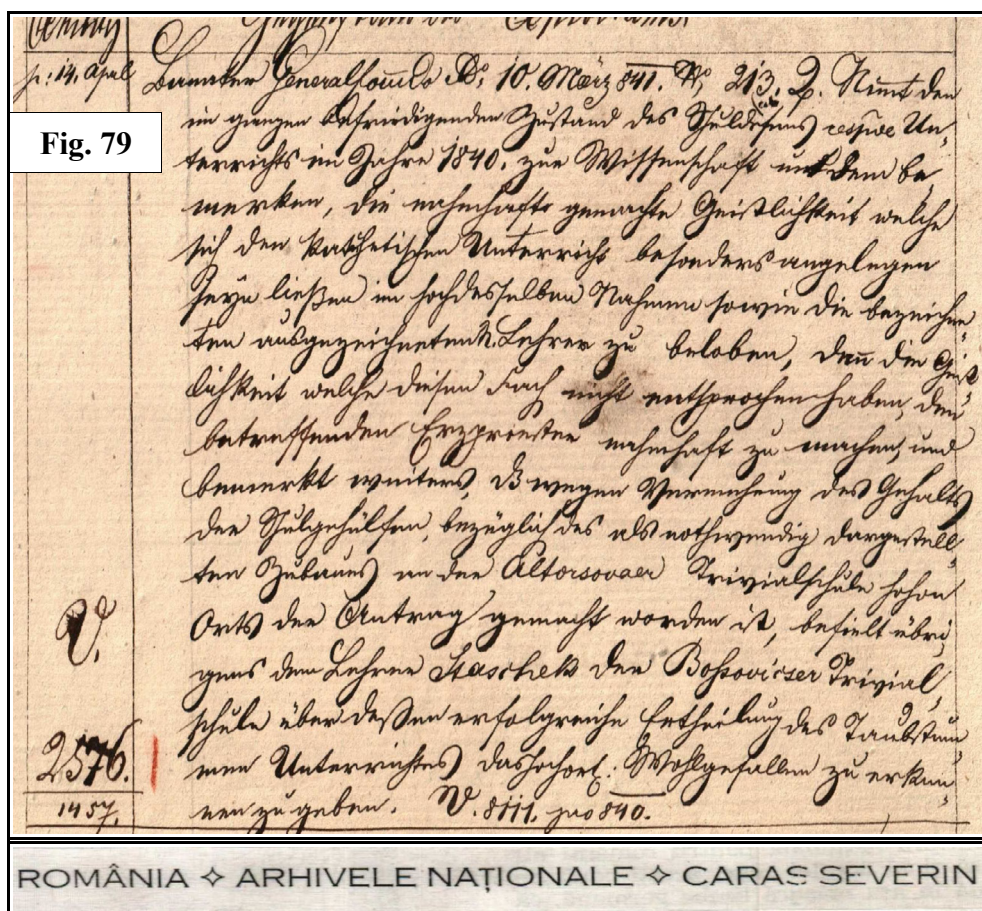 p: 14. April
Banater Generalkomdo Do. 10. März 841. No 213. Q. Nimmt den
im ganzen befriedigenden Zustand des Schulwesens respve Un-
Fig. 79
terrichts im Jahre 1840. zur Wissenschaft mit dem be-
merken, die nahmhaft gemachte Geistlichkeit welche
sich den katechetischen Unterricht besonders angelegen
seyn ließen im hochdesselben Nahmen sowie die bezeichne-
ten ausgezeichneten Lehrer zu beloben, dann die Geist-
lichkeit welche diesen Fach nicht entsprochen haben, den
betreffenden Erzpriester nahmhaft zu machen, und
bemerkt weiters, dß wegen Vermehrung des Gehalts
der Schulgehülfen, bezüglich des als nothwendig dargestell-
ten Zubaues an der Altorsovaer Trivialschule hohen
Orts der Antrag gemacht worden ist, befielt übri-
gens dem Lehrer Staschek der Bosovicser Trivial-
schule über deßen erfolgreiche Ertheilung des Taubstum-
men Unterrichtes das hochort. Wohlgefallen zu erken-
nen zu geben. V. 8111. pro 840.
V.
2576.
1457.
ROMÂNIA ✧ ARHIVELE NAȚIONALE ✧ CARAS SEVERIN